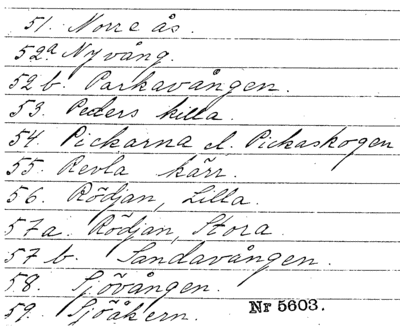 51. Norre ås.
52a. Nyvång.
52 b. Parkavången.
53. Peders killa.
54. Pickarna el. Pickaskogen
55. Revla kärr.
56. Rödjan, Lilla.
57a. Rödjan, Stora.
57 b. Sandavången.
58. Sjövången.
59. Sjöåkern. Nr 5603.